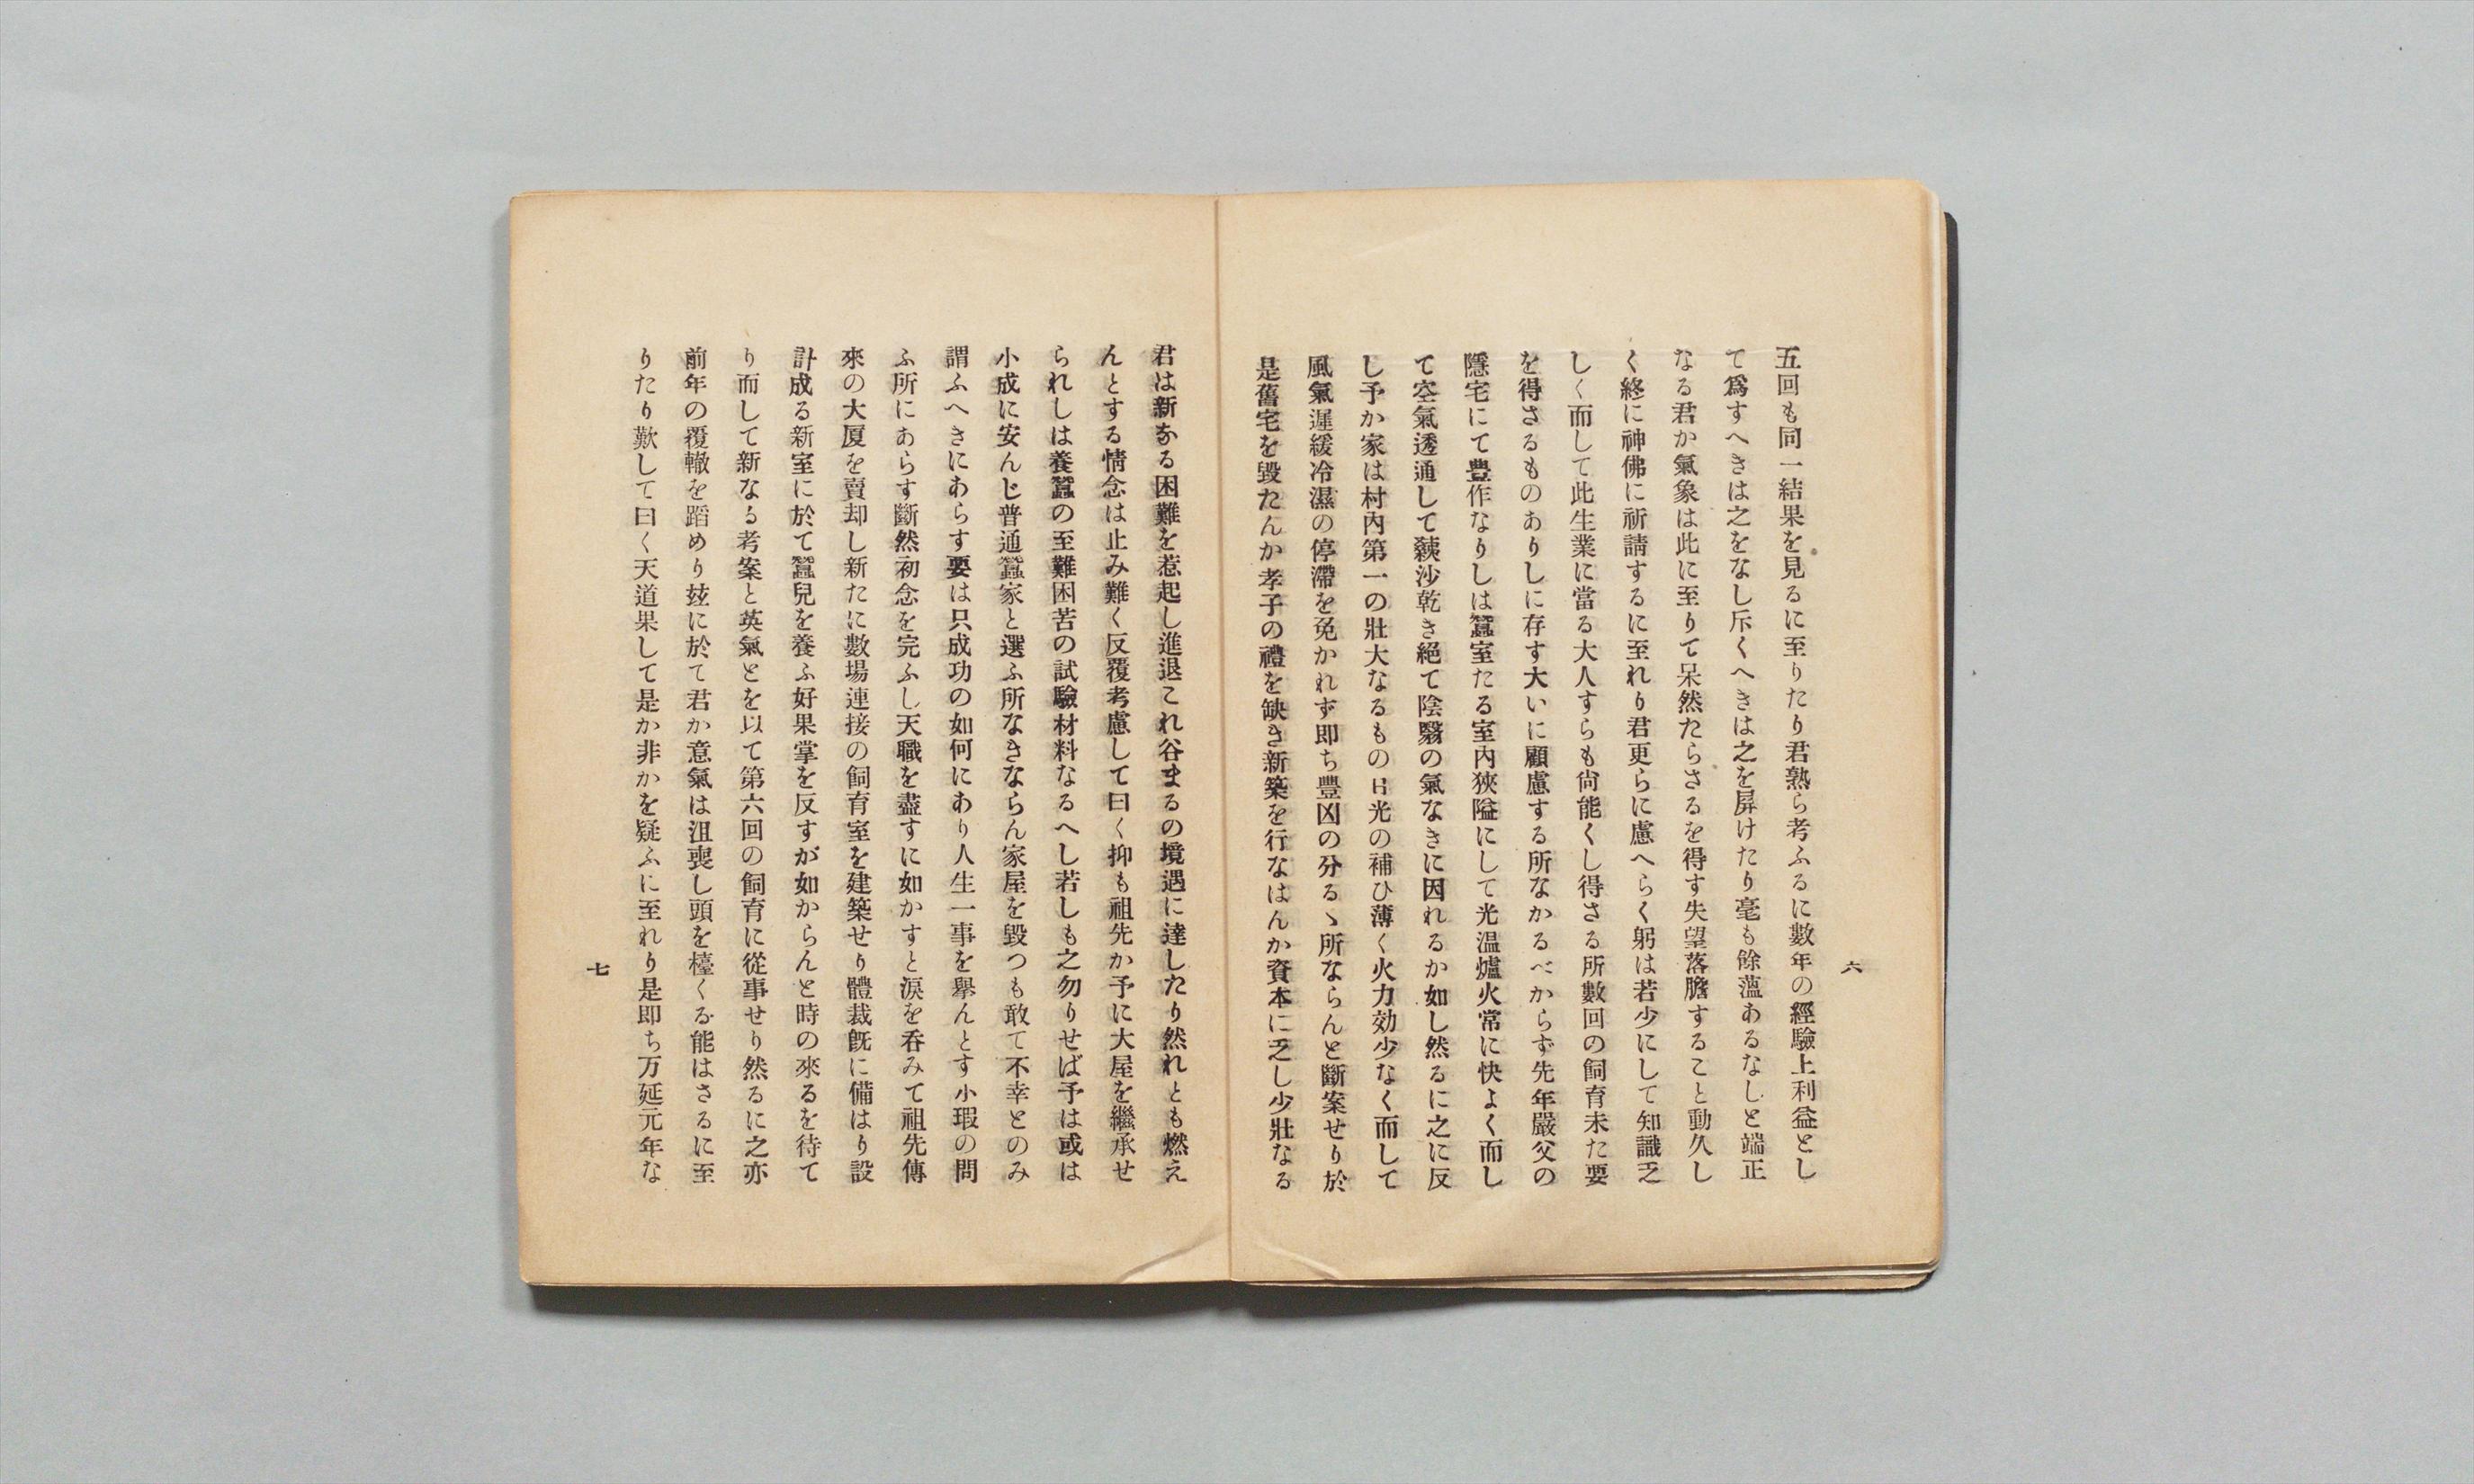 六
五回も同一結果を見るに至りたり君熟ら考ふるに數年の經驗上利益とし
て爲すへきは之をなし斥くへきは之を屏けたり毫も餘薀あるなしと端正
なる君か氣象は此に至りて呆然たらさるを得す失望落膽すること動久し
く終に神佛に祈請するに至れり君更らに慮へらく躬は若少にして知識乏
しく而して此生業に當る大人すらも尙能くし得さる所數回の飼育未た要
を得さるものありしに存す大いに顧慮する所なかるべからず先年嚴父の
隱宅にて豊作なりしは蠶室たる室内狹隘にして光温爐火常に快よく而し
て空氣透通して蘱沙乾き絕て陰翳の氣なきに因れるか如し然るに之に反
し予か家は村內第一の壯大なるもの日光の補ひ薄く火力効少なく而して
風氣遲緩冷濕の停滯を免かれず即ち豐凶の分るゝ所ならんと斷案せり於
是舊宅を毀たんか孝子の禮を缺き新築を行なはんか資本に乏し少壯なる
君は新なる困難を惹起し進退これ谷まるの境遇に達したり然れとも燃え
んとする情念は止み難く反覆考慮して曰く抑も祖先か予に大屋を繼承せ
られしは養蠶の至難困苦の試驗材料なるへし若しも之勿りせば予は或は
小成に安んじ普通蠶家と選ふ所なきならん家屋を毀つも敢て不幸とのみ
謂ふへきにあらす要は只成功の如何にあり人生一事を擧んとす小瑕の問
ふ所にあらす斷然初念を完ふし天職を盡すに如かすと涙を呑みて祖先傳
來の大厦を賣却し新たに數場連接の飼育室を建築せり體裁旣に備はり設
計成る新室に於て蠶兒を養ふ好果掌を反すが如からんと時の來るを待て
り而して新なる考案と英氣とを以て第六回の飼育に從事せり然るに之亦
前年の覆轍を蹈めり玆に於て君か意氣は沮喪し頭を擡くる能はさるに至
りたり歎して曰く天道果して是か非かを疑ふに至れり是即ち万延元年な
七